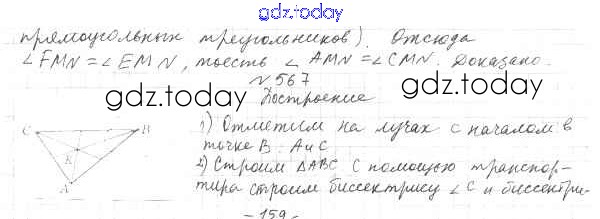 gdz.today
прямоугольных треугольников). Отсюда
∠FMN = ∠EMN, тоесть ∠AMN = ∠CMN. Доказано.
№ 567
gdz.today
gdz.today
Построение
C
B
K
A
1) Отметим на лучах с началом в
точке B: A и C
2) Строим △ABC С помощью транспор-
тира строим биссектрису ∠C и биссектри-
- 159 -